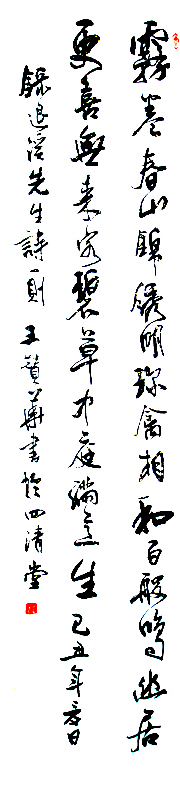 霧卷春山錦繡明珍禽相和百般鳴幽居
更喜無來客碧草中庭滿意生 己丑年春日
錄退溪先生詩一則 王贊華書於四清堂